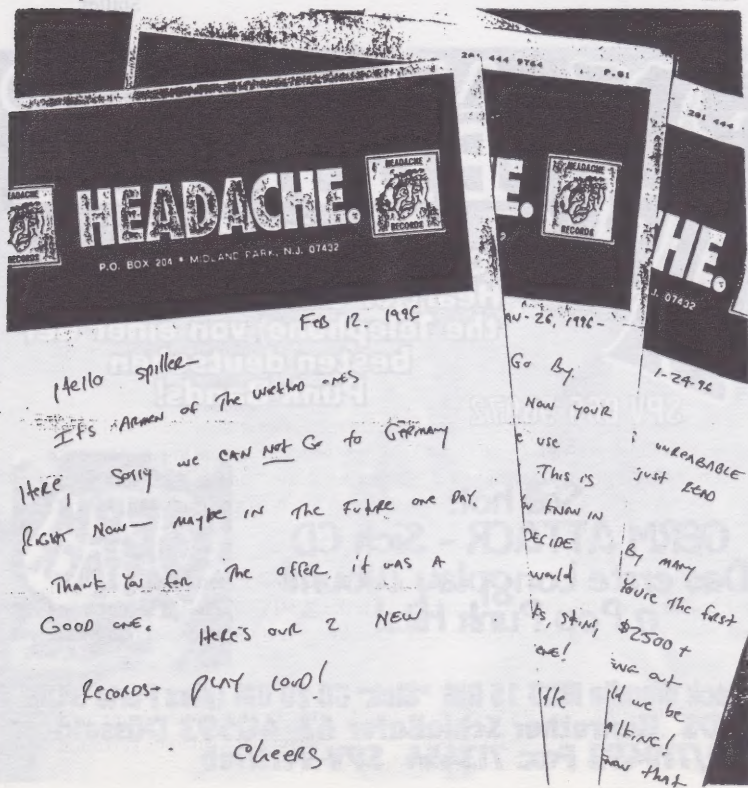 HEADACHE.
HEADACHE
RECORDS
P.O. BOX 204 • MIDLAND PARK, N.J. 07432
FEB 12, 1996
Hello spiller-
It's ARMEN of The wretched ones
Here, Sorry we CAN NOT Go to GERMANY
RIGHT NOW— MAYBE IN The Future ONE DAY.
Thank You for The offer it was A
GOOD ONE. Here's our 2 NEW
Records- PLAY LOUD!
Cheers
201 444 9764 P.01
E.
HEADACHE
RECORDS
AN-26, 1996-
Go By.
Now YOUR
e use
This is
W KNOW IN
DECIDE
would
ts, STING,
ERE!
tle
201 444
HE.
J. 07432
1-24-96
UNREADABLE
just READ
By MANY
You're The first
$2500 +
ING OUT
ld we be
ALKING!
now that